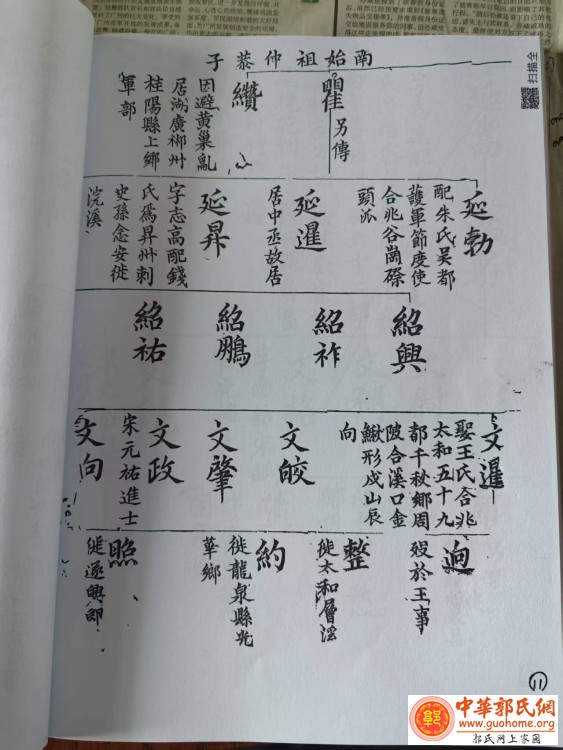 南始祖仲恭子
瞿
另傳
纘
因避黄巢亂
居湖廣郴州
桂陽縣上鄉
軍部
延勃
配朱氏吴都
護軍節度使
合兆谷崗磜
頭派
延暹
居中丞故居
延昇
字志高配錢
氏爲昇州刺
史孫念安徙
浣溪
紹興
紹祚
紹鵬
紹祐
文暹
娶王氏合兆
太和五十九
都千秋鄉周
陂合溪口金
鰍形戍山辰
向
文皎
文肇
文政
宋元祐進士
文向
逈
殁於王事
整
徙太和層溪
約
徙龍泉縣光
華鄉
照
徙遂興郎
11
扫描全
中華郭氏網
www.guohome.org
郭氏网上家园